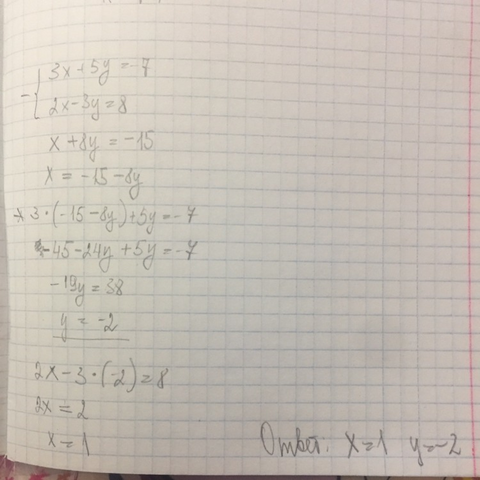 3x+5y=-7
- 2x-3y=8
x+8y=-15
x=-15-8y
3·(-15-8y)+5y=-7
-45-24y+5y=-7
-19y=38
y=-2
2x-3·(-2)=8
2x=2
x=1
Ответ: x=1 y=-2